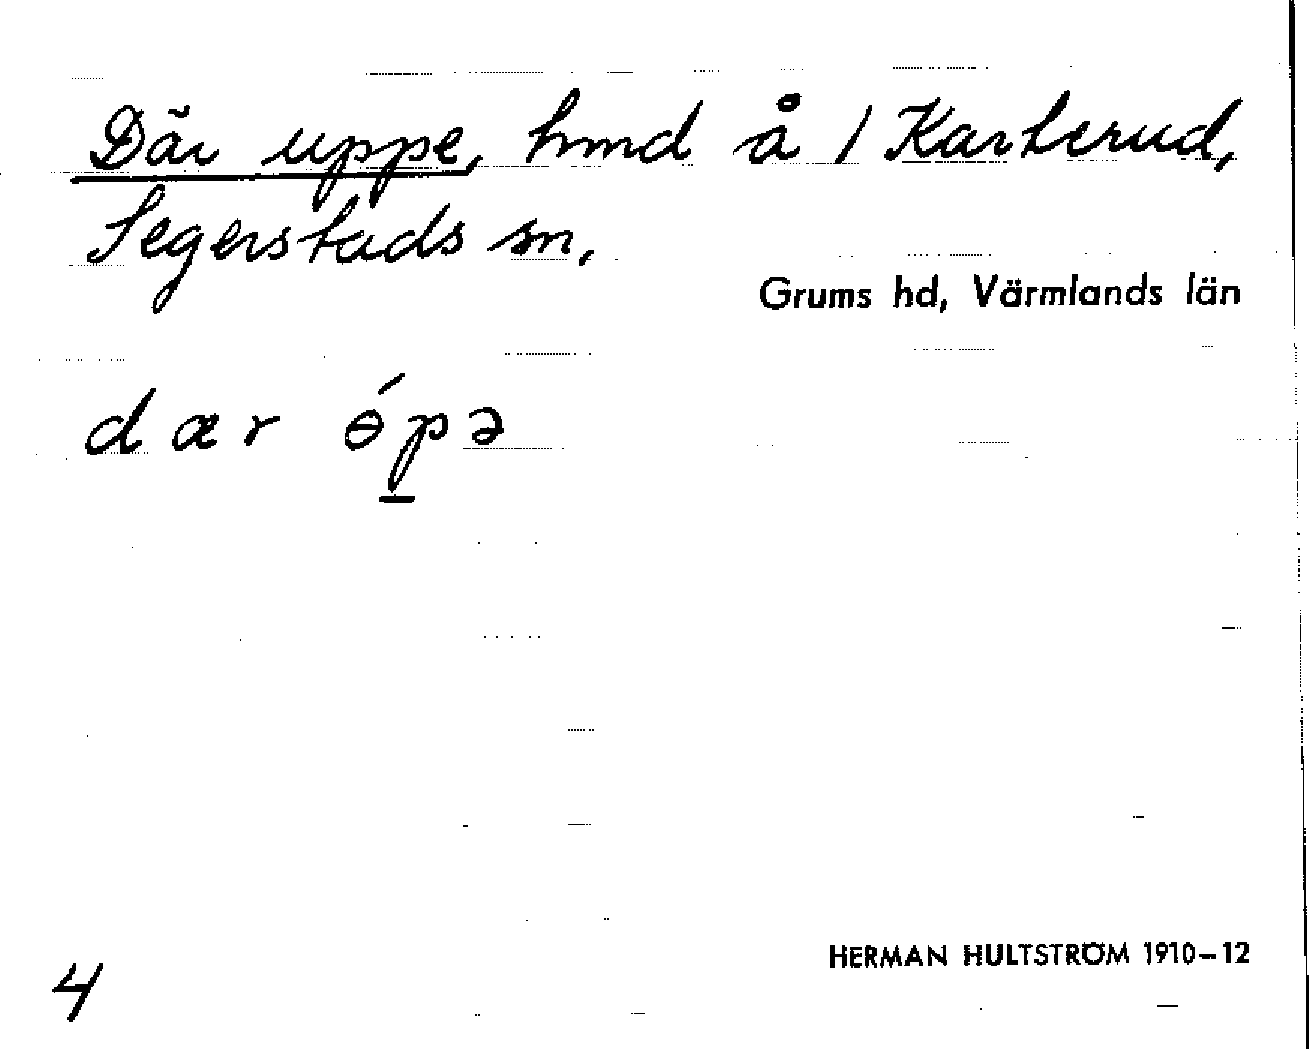 Där uppe, hmd å 1 Karterud,
Segerstads sn,
Grums hd, Värmlands län
dær ɵ́pə
HERMAN HULTSTRÖM 1910–12
4